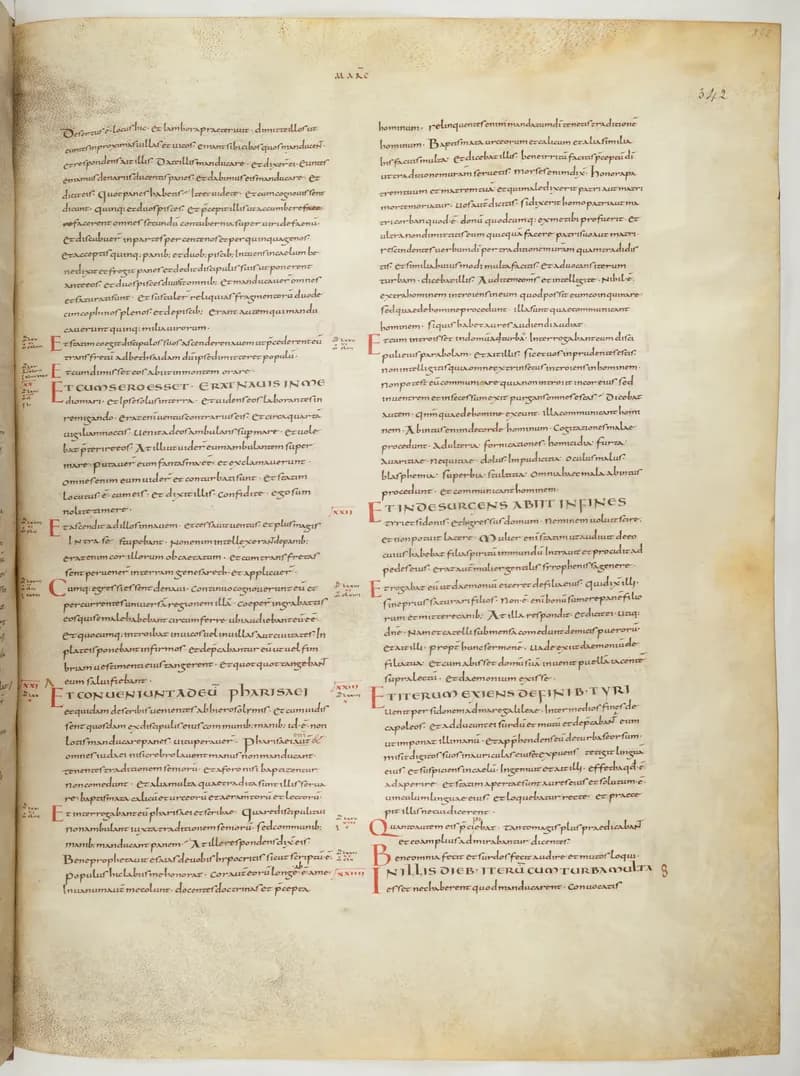 MARC
342
Desertus ē locus hic · et iam hora praeterivit · dimitte illos ut
euntes in proximas villas et vicos · emant sibi cibos quos manducent
et respondens ait illis · Date illis manducare · et dixer̄ ei · Euntes
emamus denariis ducentis panes · et dabimus eis manducare · Et
dicit eis · Quot panes habetis · Ite et videte · Et cum cognovissent
dicunt · quinq: et duos pisces · Et p̄cepit illis ut accumbere
facerent omnes secundū contubernia super viride faenū ·
Et discubuer̄ in partes per centenos et per quinquagenos ·
Et acceptis quinq: panib; et duob; piscib; Intuens in caelum be
nedixit et fregit panes et dedit discipulis suis ut ponerent
ante eos · et duos pisces divisit omnib; Et manducaver̄ omnes
et saturati sunt · Et sustuler̄ reliquias fragmentorū duode
cim cophinos plenos · et de piscib; Erant autem qui mandu
caverunt quinq; milia virorum ·
Et statim coegit discipulos suos ascendere navem ut p̄cederent eū
trans fretū ad bethsaidam dū ipse dimitteret populū ·
Et cum dimisisset eos abiit in montem orare ·
ET CUM SERO ESSET · ERAT NAVIS IN ME
dio mari · Et ipse solus in terra · Et videns eos laborantes in
remigando · Erat enī ventus contrarius eis · Et circa quartā
vigiliam noctis · Venit ad eos ambulans sup mare · Et vole
bat p̄terire eos · At illi ut vider̄ eum ambulantem super
mare · Putaver̄ eum fantasma eē · et exclamaverunt ·
omnes enim eum vider̄ et conturbati sunt · Et statim
locutus ē cum eis · Et dixit illis · Confidite · ego sum
nolite timere ·
Et ascendit ad illos in navem · Et cessavit ventus · Et plus magis
Intra se stupebant · Non enim intellexeran̄t de panib;
erat enim cor illorum obcaecatum · Et cum transfretas
sent pervener̄ in terram genesareth · et applicuer̄ ·
Cumq: egressi essent de navi · Continuo cognoverunt eū et
percurrentes universā regionem illā · Coeper̄ in grabattis
eos qui se male habebant circumferre · ubi audiebant eū eē ·
Et quocumq: introibat in vicos vel in villas aut civitates · In
plateis ponebant infirmos · Et dep̄cabantur eū ut vel fim
briam vestimenti eius tangerent · Et quotquot tangebant
eum salvi fiebant ·
XXI
ET CONVENIUNT AD EŪ PHARISAEI
et quidam de scribis venientes ab hierosolymis · Et cum vidis
sent quosdam ex discipulis eius communib; manib; id · ē · non
lotis manducare panes · vituperaver̄ · Pharisaei aut̄
omnes iudaei nisi crebro laverint manus non manducant ·
tenentes traditionem seniorū · Et a foro nisi baptizentur
non comedunt · Et alia multa quae tradita sunt illis serva
re · baptismata calicū et urceorū et aeramtorū et lectorū ·
Et interrogabant eū pharisaei et scribae · Quare discipuli tui
non ambulant iuxta traditionem seniorū · sed communib;
manib; manducant panem · At ille respondens dix̄ eis ·
Bene prophetavit esaias de vobis hypocritis sicut scriptū · ē ·
populus hic labiis me honorat · Cor autē eorū longe · ē · a me ·
In vanum aut̄ me colunt · docentes doctrinas et p̄cepta
hominum · relinquentes enim mandatum dī tenetis traditionē
hominum · Baptismata urceorum et calicum et alia similia
his facitis multa · Et dicebat illis · bene irritū facitis p̄ceptū dī
ut traditionem vr̄am servetis · Moses enim dix̄ · Honora pa
trem tuum et matrem tuā · et qui maledixerit patri aut matri
morte moriatur · Vos aut̄ dicitis · si dixerit homo patri aut ma
tri corban quod · ē · donū quodcumq: ex me tibi profuerit · Et
ultra non dimittitis eum quicquā facere patri suo aut matri ·
rescindentes verbum dī per traditionem vr̄am quam tradidis
tis · Et similia huiusmodi multa facitis · Et advocans iterum
turbam · dicebat illis · Audite me oms̄ et intellegite · Nihil · ē ·
extra hominem introiens in eum quod possit eum coinquinare ·
sed quae de homine procedunt · illa sunt quae communicant
hominem · si quis habet aures audiendi audiat ·
Et cum introisset in domū a turba · Interrogabant eum disci
puli eius parabolam · Et ait illis · sic et vos inprudentes estis ·
non intellegitis quia omne extrinsecus introiens in hominem ·
non potest eū communicare quia non introit in cor eius sed
in ventrem et in secessum exit purgans omnes escas · Dicebat
autem · Qm̄ quae de homine exeunt · illa communicant homi
nem · Ab intus enim de corde hominum · Cogitationes malae
procedunt · Adulteria · fornicationes · homicidia · furta ·
Avaritiae · nequitiae · dolus · Impudicitia · oculus malus ·
blasphemia · superbia · stultitia · Omnia haec mala ab intus
procedunt · et communicant hominem ·
XXII
ET INDE SURGENS ABIIT IN FINES
tyri et sidonis · Et ingressus domum · Neminem voluit scire ·
Et non potuit latere · Mulier enī statim ut audivit de eo
cuius habebat filia spiritū inmundū Intravit et procidit ad
pedes eius · Erat aut̄ mulier gentilis syrophenissa genere ·
Et rogabat eū ut daemoniū eiceret de filia eius · Qui dix̄ illi ·
sine prius saturari filios · Non · ē · enī bonū sumere panē filio
rum et mittere canib; At illa respondit · et dicit ei · Utiq:
dn̄e · Nam et catelli sub mensa comedunt de micis puerorū ·
Et ait illi · propt̄ hunc sermonē · Vade exiit daemoniū de
filia tua · Et cum abisset domū suā · Invenit puellā iacentē
supra lectū · Et daemonium exisse ·
XXIII
ET ITERUM EXIENS DE FINIB · TYRI
Venit per sidonem ad mare galileae · Inter medios fines de
capoleos · Et adducunt ei surdū et mutū et dep̄cabant̄ eum
ut imponat illi manū · Et app̄hendens eū de turba seorsum ·
misit digitos suos in auriculas eius et expuens tetigit linguā
eius · et suspiciens in caelū · Ingemuit et ait illi · effeta quod · ē ·
adaperire · Et statim apertae sunt aures eius et solutum · ē ·
vinculum linguae eius · Et loquebatur recte · Et praece
pit illis ne cui dicerent ·
Quanto autem eis p̄cipiebat · Tanto magis plus praedicabant
et eo amplius admirabantur dicentes ·
Bene omnia fecit et surdos fecit audire et mutos loqui ·
XXIIII
IN ILLIS DIEB · ITERŪ CUM TURBA MULTA
esset nec haberent quod manducarent · Convocatis